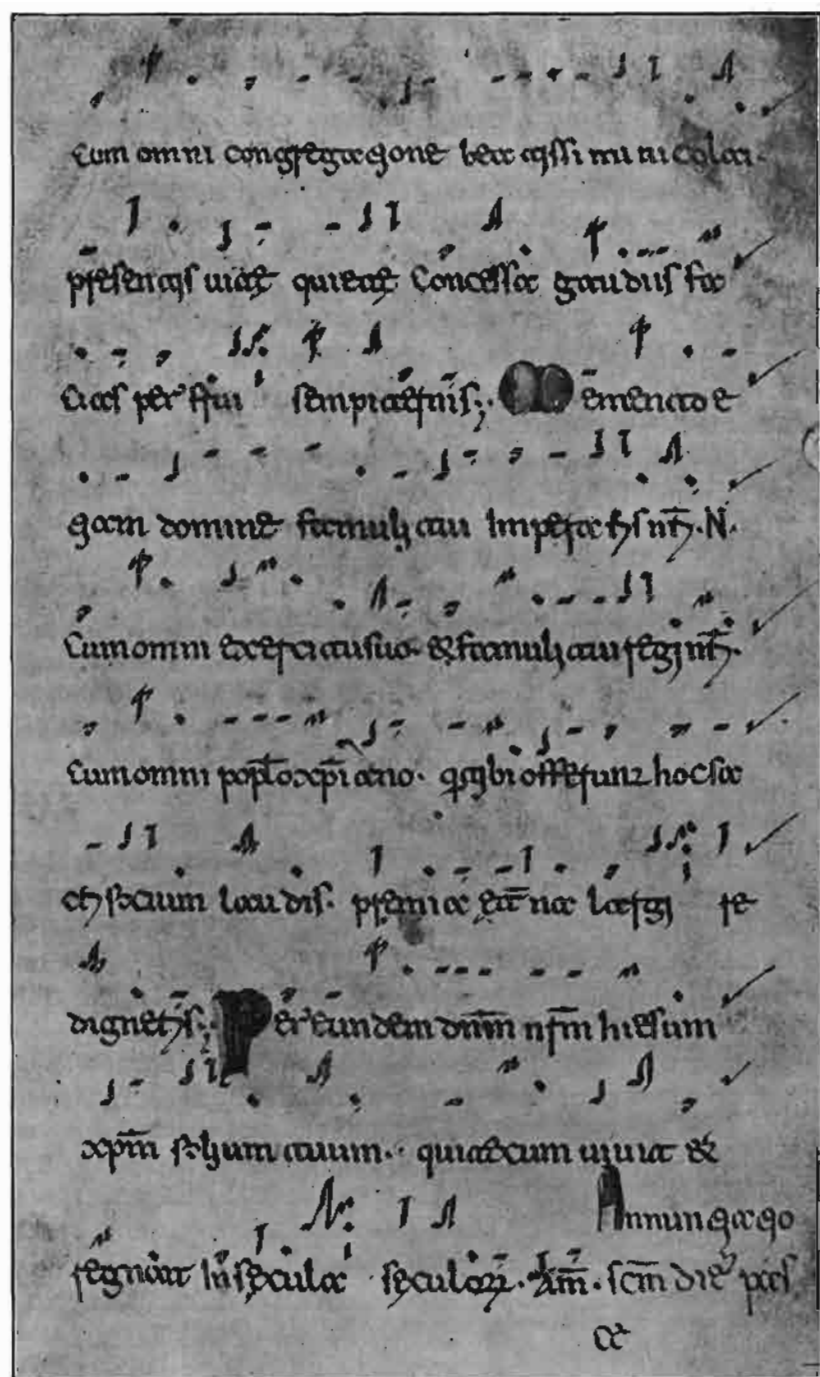 Cum omni congregatione beatissimi nicolai.
presentis uitę quietę Concessa gaudiis fa
Cias perfrui sempiternis;. Memento e
tiam domine famuli tui Imperatoris nr̄i. N.
Cum omni exercitu suo. & famuli tui regi nr̄i.
Cum omni pop̄lo xp̄iano. q̄ tibi offerunt hoc sa
crificium laudis. premia ęt̄na largi re
digneris;. Per eundem dnm̄ nr̄m hiesum
xp̄m filium tuum. qui tecum uiuit &
Annuntiatio
regnat In sęcula sęculorꝝ. Am̄. scm̄ diē pas
ce